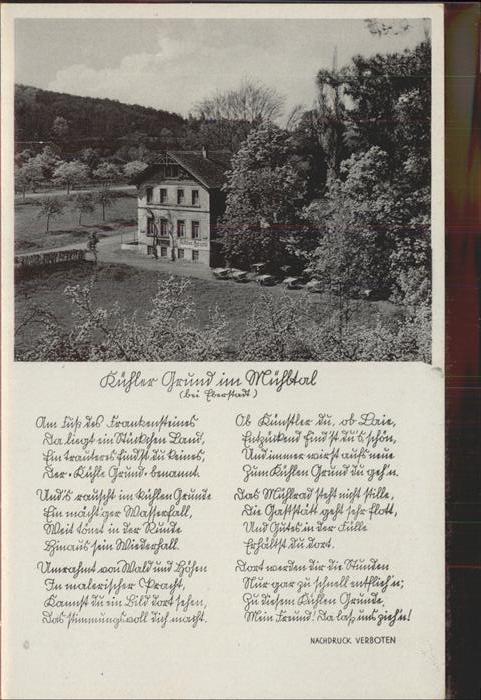 Kühler Grund im Mühltal
(bei Eberstadt)
Am Fuß des Frankensteines
Da liegt ein Stückchen Land,
Ein trauteres findst du keines,
Der „Kühle Grund“ benannt.
Und's rauscht im kühlen Grunde
Ein mächt'ger Wasserfall,
Weit tönt in der Runde
Hinaus sein Wiederhall.
Umrahmt von Wald und Höhen
In malerischer Pracht,
Kannst du ein Bild dort sehen,
Das stimmungsvoll dich macht.
Ob Künstler du, ob Laie,
Entzückend find'st du's schön,
Und immer wirst aufs neue
Zum Kühlen Grund du geh'n.
Das Mühlrad steht nicht stille,
Die Gaststätt geht sehr flott,
Und Gutes in der Fülle
Erhältst du dort.
Dort werden dir die Stunden
Nur gar zu schnell entflieh'n;
Zu diesem Kühlen Grunde,
Mein Freund! Da laß uns zieh'n!
NACHDRUCK VERBOTEN